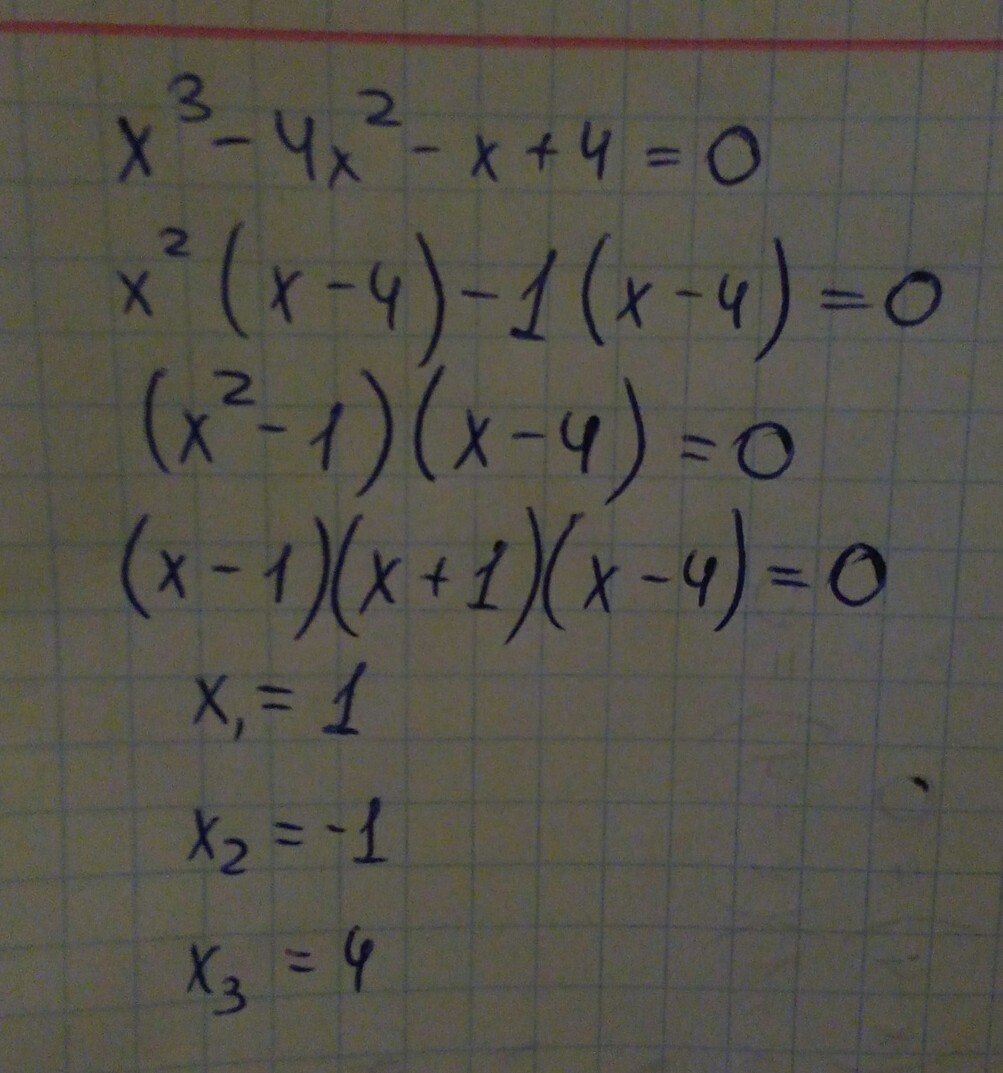 x³ - 4x² - x + 4 = 0
x² (x - 4) - 1 (x - 4) = 0
(x² - 1)(x - 4) = 0
(x - 1)(x + 1)(x - 4) = 0
x₁ = 1
x₂ = -1
x₃ = 4